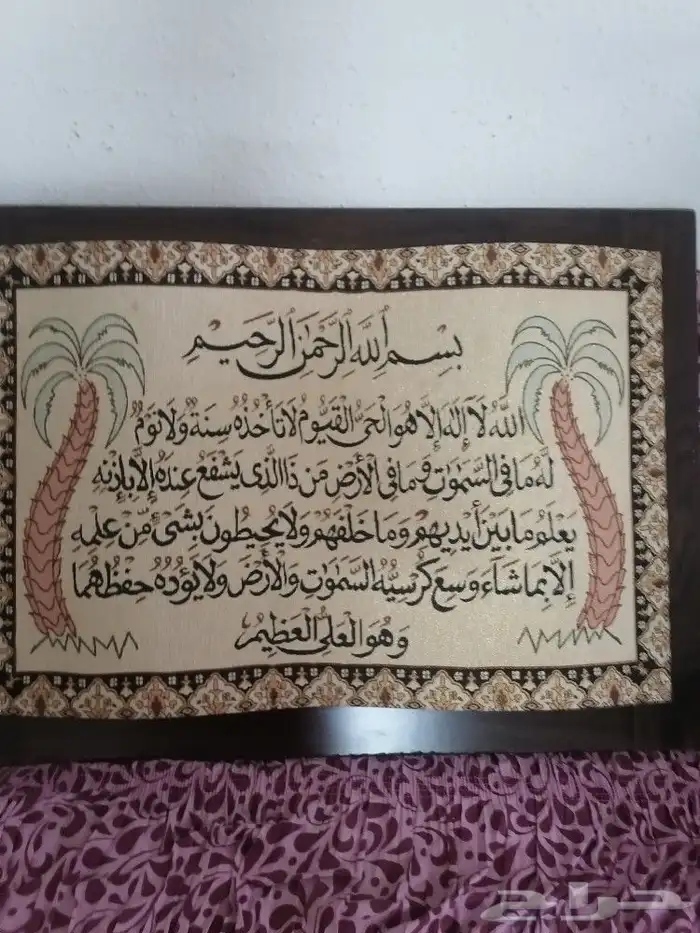 بِسْمِ اللَّهِ الرَّحْمَٰنِ الرَّحِيمِ
اللَّهُ لَا إِلَٰهَ إِلَّا هُوَ الْحَيُّ الْقَيُّومُ لَا تَأْخُذُهُ سِنَةٌ وَلَا نَوْمٌ
لَهُ مَا فِي السَّمَٰوَاتِ وَمَا فِي الْأَرْضِ مَنْ ذَا الَّذِي يَشْفَعُ عِنْدَهُ إِلَّا بِإِذْنِهِ
يَعْلَمُ مَا بَيْنَ أَيْدِيهِمْ وَمَا خَلْفَهُمْ وَلَا يُحِيطُونَ بِشَيْءٍ مِنْ عِلْمِهِ
إِلَّا بِمَا شَاءَ وَسِعَ كُرْسِيُّهُ السَّمَٰوَاتِ وَالْأَرْضَ وَلَا يَؤُدُهُ حِفْظُهُمَا
وَهُوَ الْعَلِيُّ الْعَظِيمُ
حراج